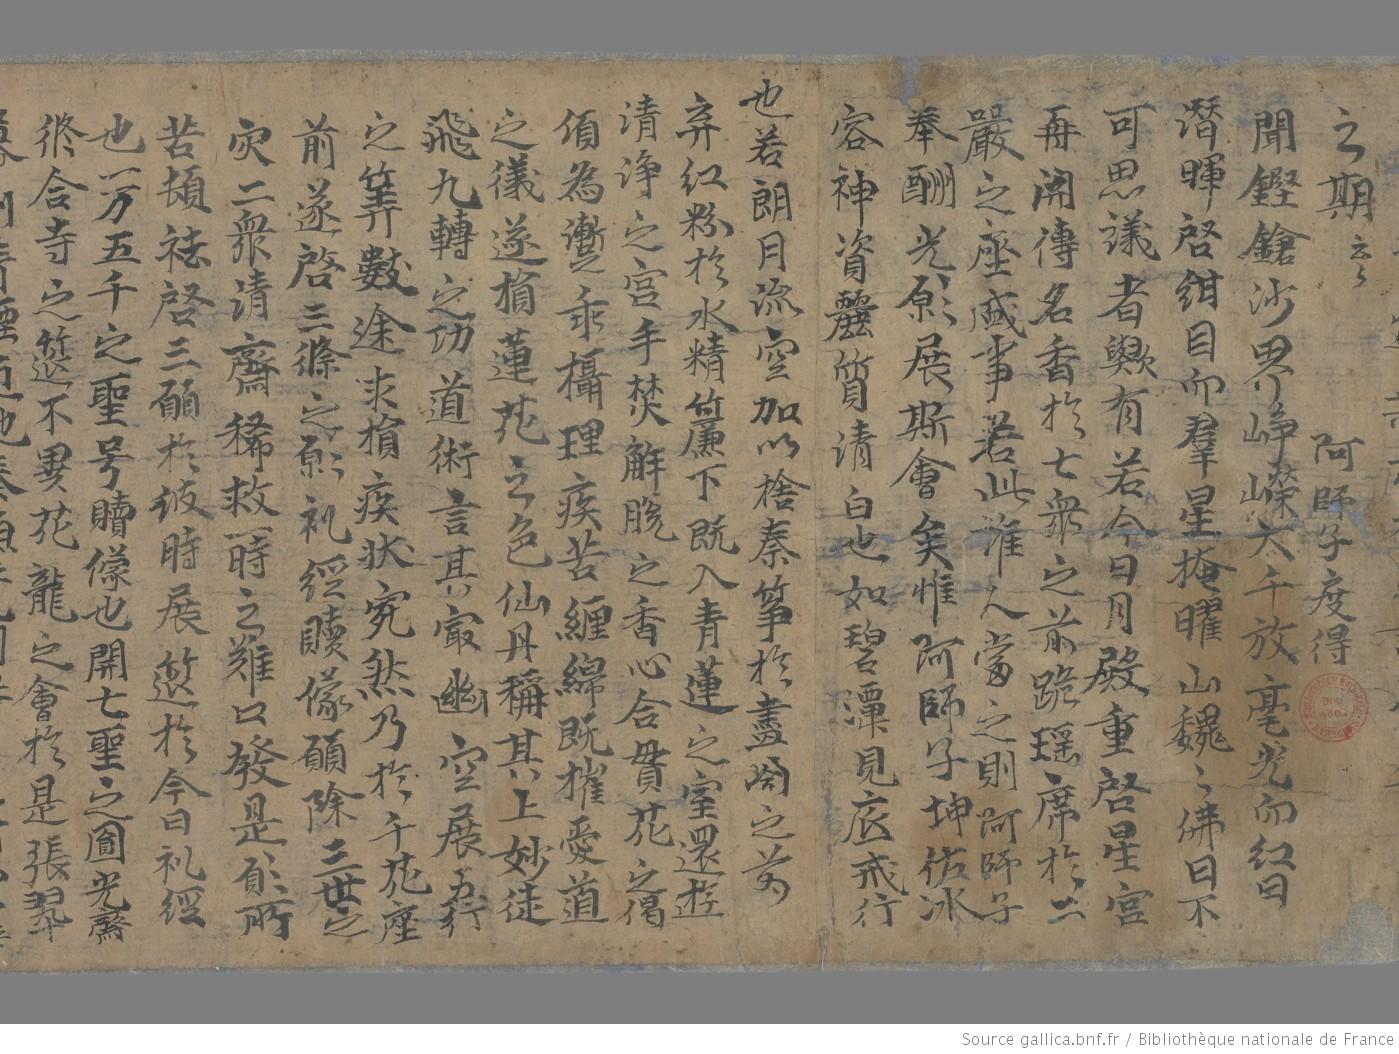 之期云々
阿師子度得
聞鏗鎗沙界峥嶸大千放毫光而紅日
潛暉啓紺目而羣星掩曜山巍々佛日不
可思議者歟有若今日月殿重啓星宮
再開傳名香於七衆之前跪瑶席於二
嚴之座盛事若此誰人當之則阿師子
奉酬光願展斯會矣惟阿師子坤佑冰
容神資麗質清白也如碧潭見底戒行
也若朗月流空加以捨秦箏於畫閣之前
弃紅粉於水精簾下既入青蓮之室還遊
清浄之宮手焚解脱之香心合貫花之偈
頃為漸乖攝理疾苦纏綿既摧愛道
之儀遂損蓮花之色仙丹稱其上妙徒
飛九轉之功道術言其冣幽空展五行
之筭數途求損疾狀宛然乃於千花座
前遂啓三條之願礼經贖像願除三世之
灾二衆清齋稀救一時之難口發是願所
苦頓祛啓三願於彼時展筵於今日礼經
也一万五千之聖号贖像也開七聖之圓光齋
終合寺之筵不異花龍之會於是張翠
Source gallica.bnf.fr / Bibliothèque nationale de France